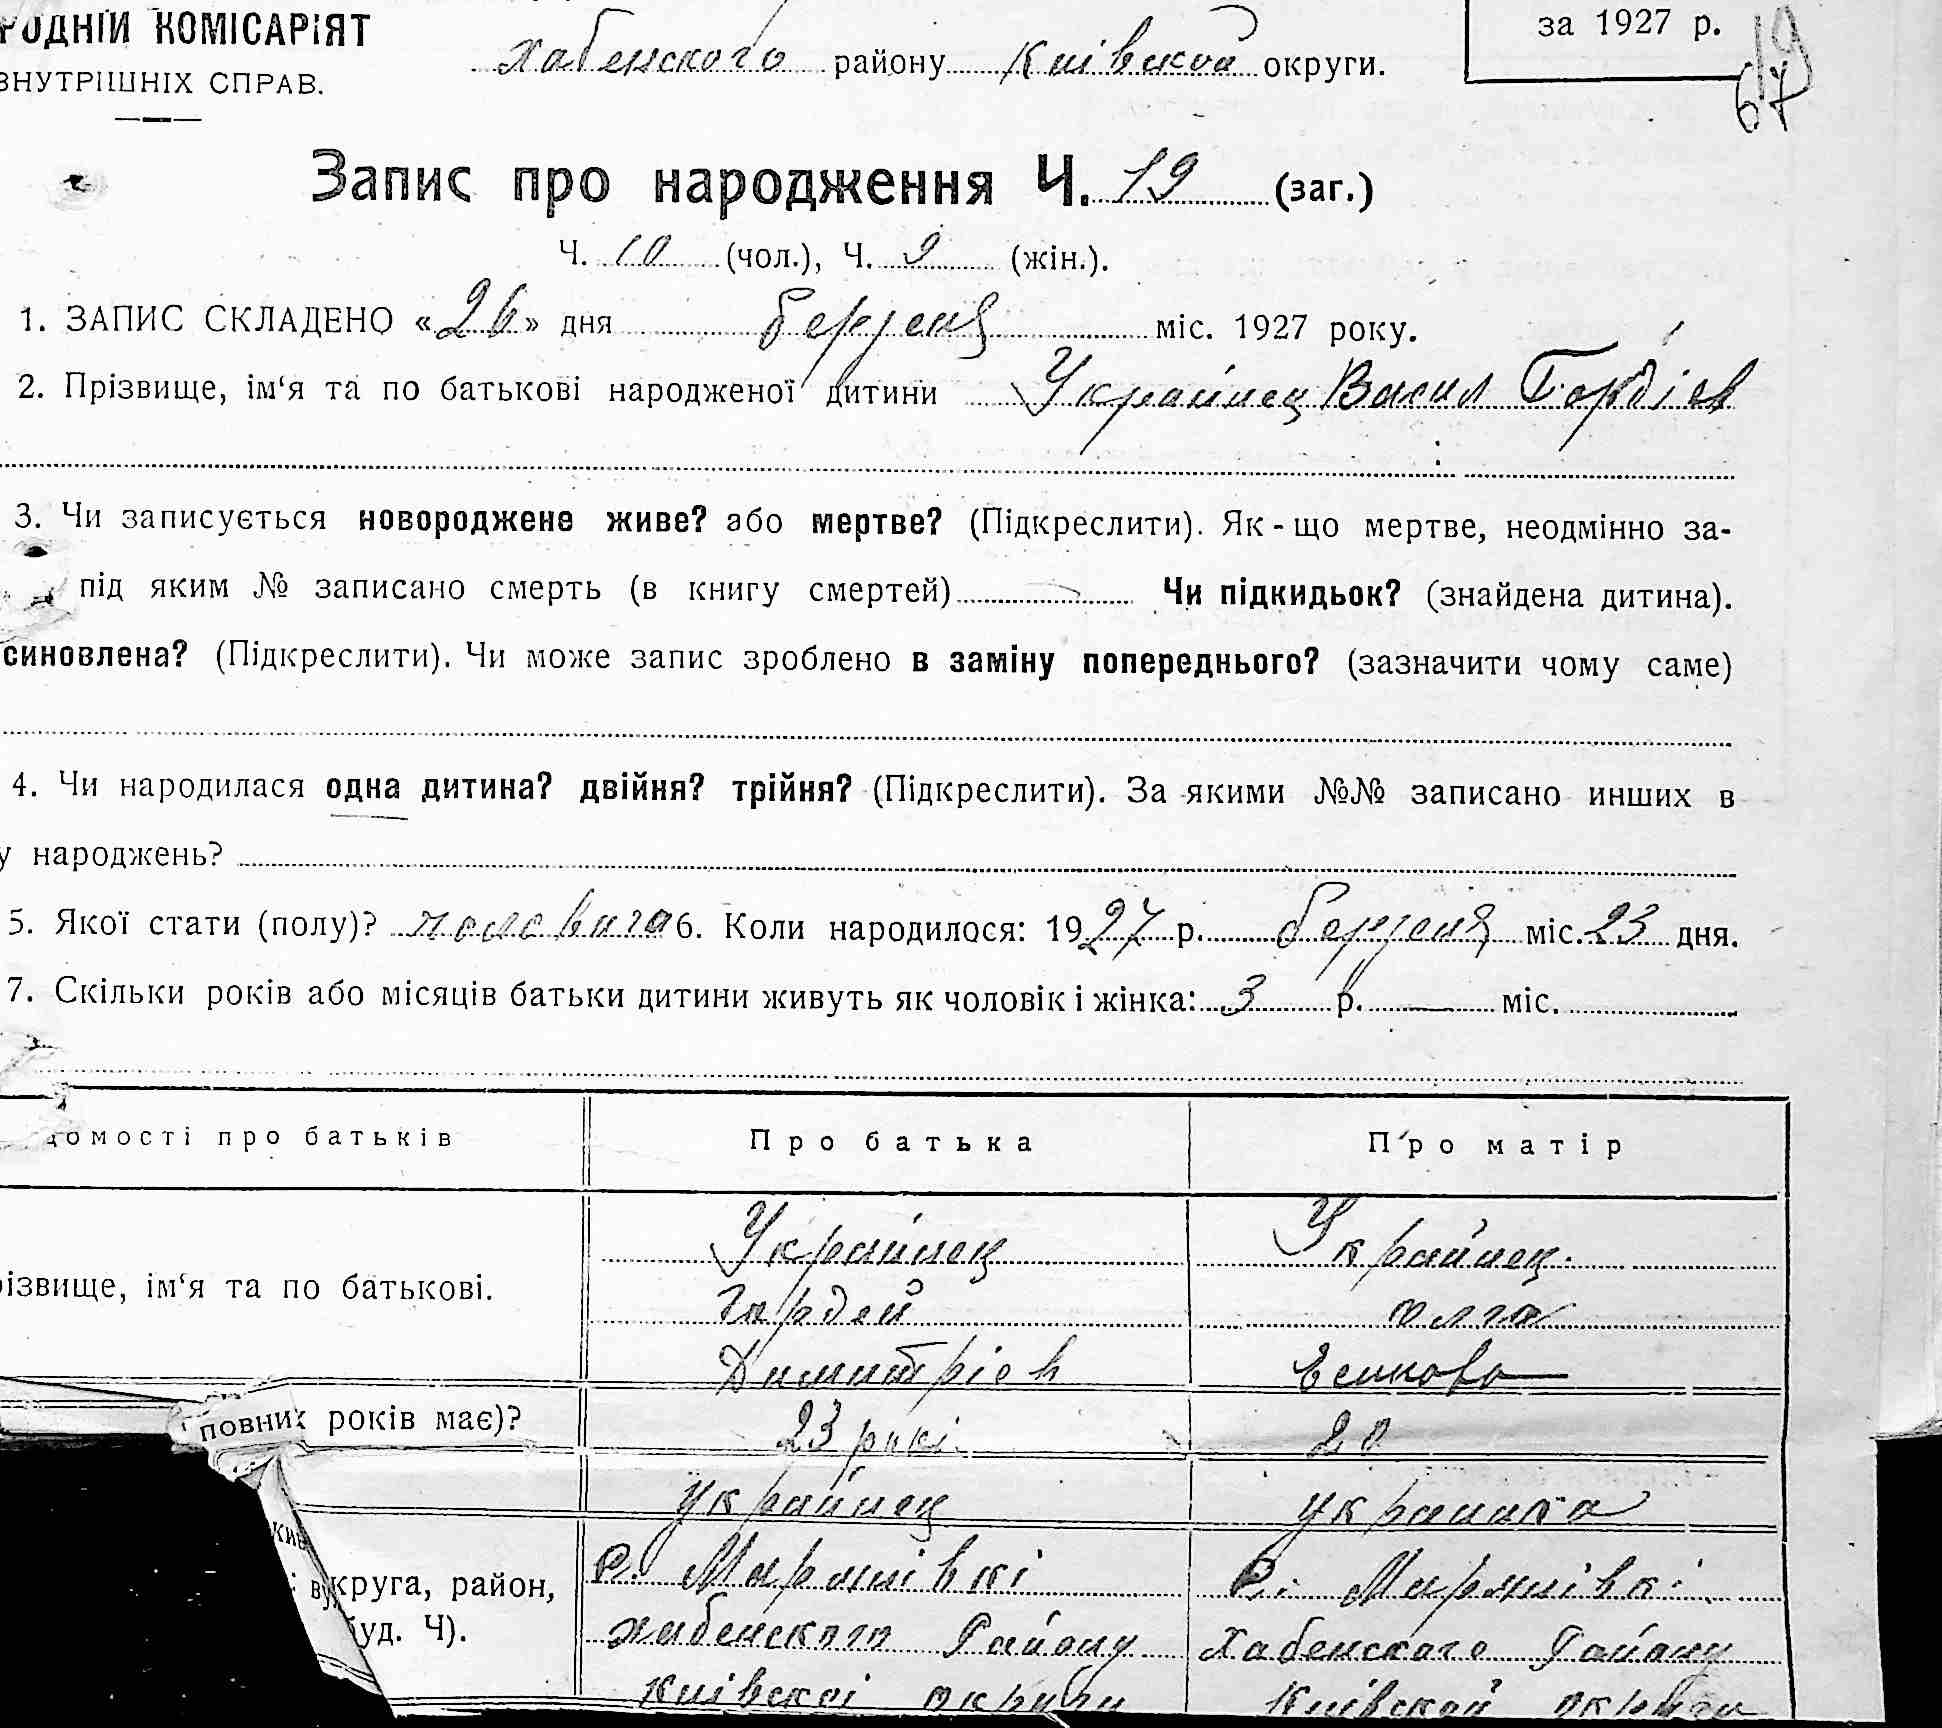 РОДНІЙ КОМІСАРІЯТ
ВНУТРІШНІХ СПРАВ.
Хабенского району Київской округи.
за 1927 р.
19
67
Запис про народження Ч. 19 (заг.)
Ч. 10 (чол.), Ч. 9 (жін.).
1. ЗАПИС СКЛАДЕНО «26» дня березня міс. 1927 року.
2. Прізвище, ім‘я та по батькові народженої дитини Українец Васил Гордієв
3. Чи записується новороджене живе? або мертве? (Підкреслити). Як-що мертве, неодмінно за-
під яким № записано смерть (в книгу смертей) Чи підкидьок? (знайдена дитина).
синовлена? (Підкреслити). Чи може запис зроблено в заміну попереднього? (зазначити чому саме)
4. Чи народилася одна дитина? двійня? трійня? (Підкреслити). За якими №№ записано инших в
у народжень?
5. Якої стати (полу)? 6. Коли народилося: 1927 р. березня міс. 23 дня.
7. Скільки років або місяців батьки дитини живуть як чоловік і жінка: 3 р. — міс.
домості про батьків Про батька Про матір
Українец Українец.
різвище, ім‘я та по батькові. Гордей Олга
Димитрієв
повних років має)? 23 рокі 20
українец українка
с. Мар'янівкі с. Мар'янівкі
круга, район,
Хабенского Району Хабенского Району
буд. Ч).
Київскої округи Київской округи